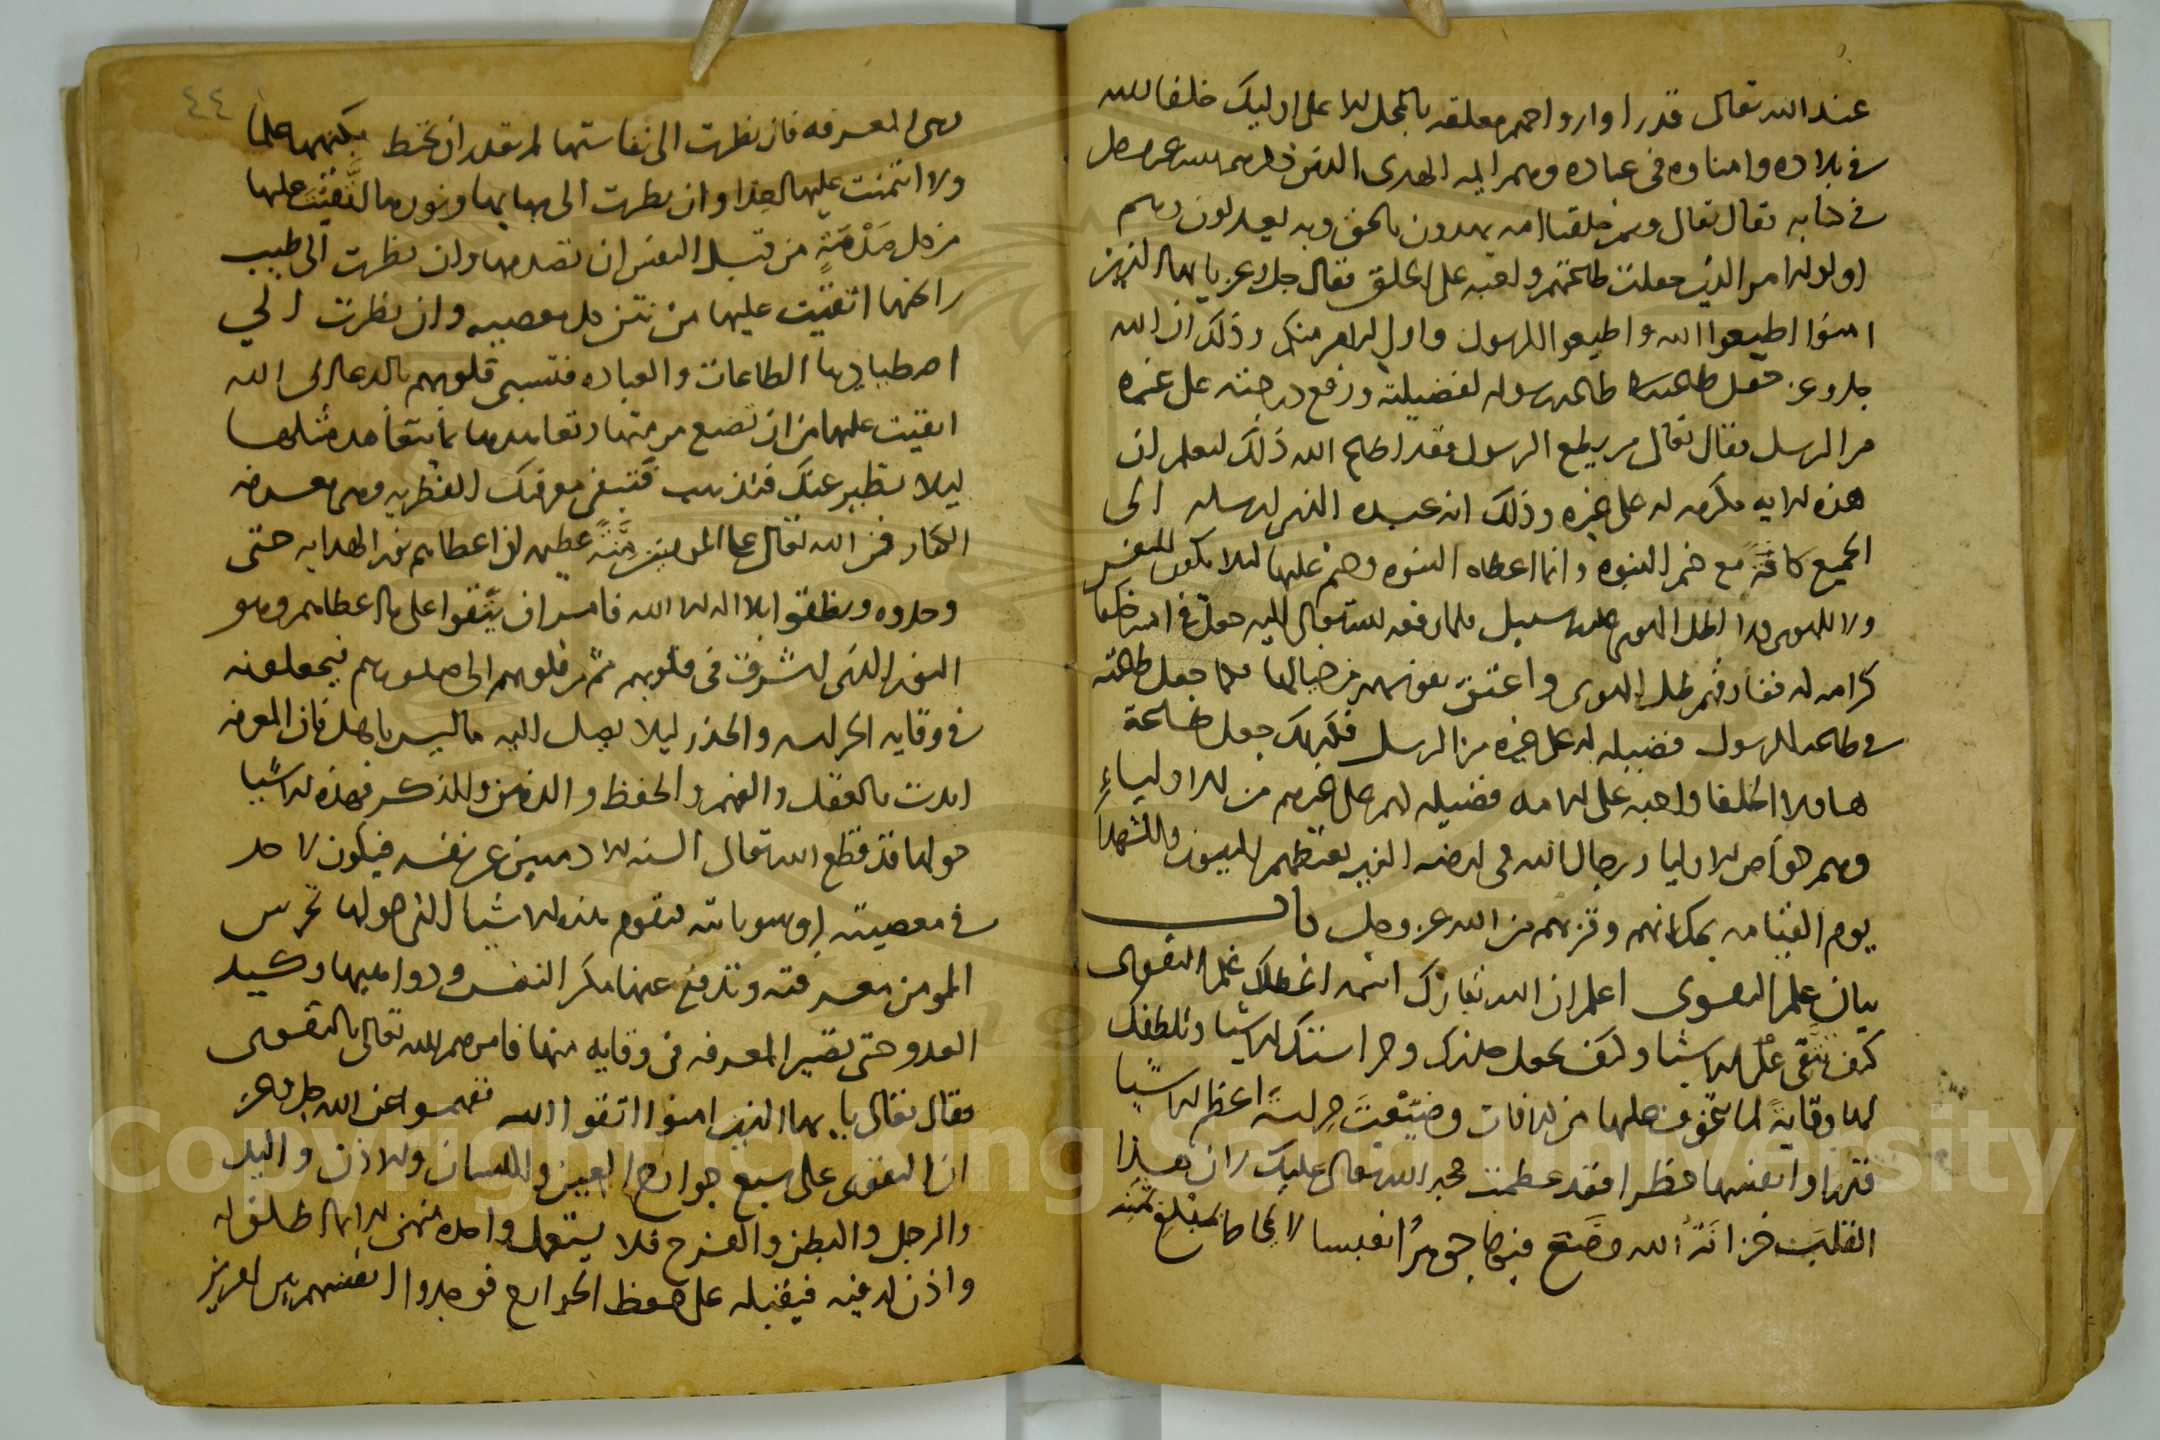 عند الله تعالى قدرا وارواحهم معلقه بالمحل الاعلى اوليك خلفا لله
في بلاده وامناوه في عباده وهم ايمه الهدى الذين ذكرهم الله عز وجل
في كتابه تعالى فقال وممن خلقنا امه يهدون بالحق وبه يعدلون وهم
اولوا الامر الذين جعلت طاعتهم واجبه على الخلق فقال جل وعز يا ايها الذين
امنوا اطيعوا الله واطيعوا الرسول واولي الامر منكم وذلك ان الله
جل وعز جعل طاعته طاعه رسوله لفضيلته ورفع درجته على غيره
من الرسل فقال تعالى من يطع الرسول فقد اطاع الله ذلك ليعلم ان
هذه الايه مكرمه له على غيره وذلك انه عبده الذي ارسله الى
الجميع كافة مع ختم النبوه وانما اعطاه النبوه وختم عليها ليلا يكون للنفس
ولا للهوى ولا لظل الهوى عليه سبيل فلما رفعه الله تعالى اليه جعل في امته خلفا
كرامه له نفاد فيهم ظل الهوى واعتق نفوسهم من حبالها فكما جعل طاعته
في طاعه الرسول فضيله له على غيره من الرسل فكذلك جعل طاعة
هاولا الخلفا واجبه على الامه فضيله لهم على غيرهم من الاولياء
وهم خواص الاوليا ورجال الله في ارضه الذين يغبطهم النبيون والشهدا
يوم القيامه بمكانهم وقربهم من الله عز وجل باب
بيان علم التقوى اعلم ان الله تبارك اسمه اعطاك علم التقوى
كيف تتقي على الاشيا وكيف تعمل حذرك وحراستك الاشيا وتلطفك
لها وقاية لما تخوف عليها من الافات وضيعت حراسة اعظم الاشيا
قدرا وانفسها خطرا فقد عظمت حجه الله تعالى عليك ان هذا
القلب خزانة الله وضع فيها جوهرا نفيسا لا يحاط بمبلغ ثمنه
٤٤
وهي المعرفه فان نظرت الى نفاستها لم تقدر ان تحيط بكنهها علما
ولا ائتمنت عليها احدا وان نظرت الى بهايها ونورها اتقيت عليها
من كل ظلمة من قبل النفس ان تصدمها وان نظرت الى طيب
رائحتها اتقيت عليها من نتن كل معصيه وان نظرت الي
اصطيادها الطاعات والعباده فتسبي قلوبهم بالدعا الى الله
اتقيت عليها من ان تضيع مرمتها وتعاهدها بما يتعاهد مثلها
ليلا تطير عنك فتذهب فتبقى معرفتك الفطريه وهي معرفه
الكفار فمن الله تعالى على المومنين منة عظيمه اذ اعطاهم نور الهدايه حتى
وحدوه ونطقوا بلا اله الا الله فامرهم ان يتقوا على ما اعطاهم وهو
النور الذي اشرق في قلوبهم ثم من قلوبهم الى صدورهم فيجعلونه
في وقايه الحراسه والحذر ليلا يصل اليه ما ليس باهل فان المعرفه
ايدت بالعقل والفهم والحفظ والذهن والذكر فهذه الاشيا
حولها فقد قطع الله تعالى السنه الادميين عن نفسه فيكون لاحد
في معصيته او هو باته لتقوم هذه الاشيا التي حولها تحرس
المومن معرفته وتدفع عنها مكر النفس ودواهيها وكيد
العدو حتى تصير المعرفه في وقايه منها فامرهم الله تعالى بالتقوى
فقال تعالى يا ايها الذين امنوا اتقوا الله تفهموا عن الله جل وعز
ان التقوى على سبع جوارح العين واللسان والاذن واليد
والرجل والبطن والفرج فلا يستعمل واحده منهن الا بما اطلق له
واذن له فيه فيقبله على حفظ الجوارح فوجدوا انفسهم بين امرين
Copyright © King Saud University